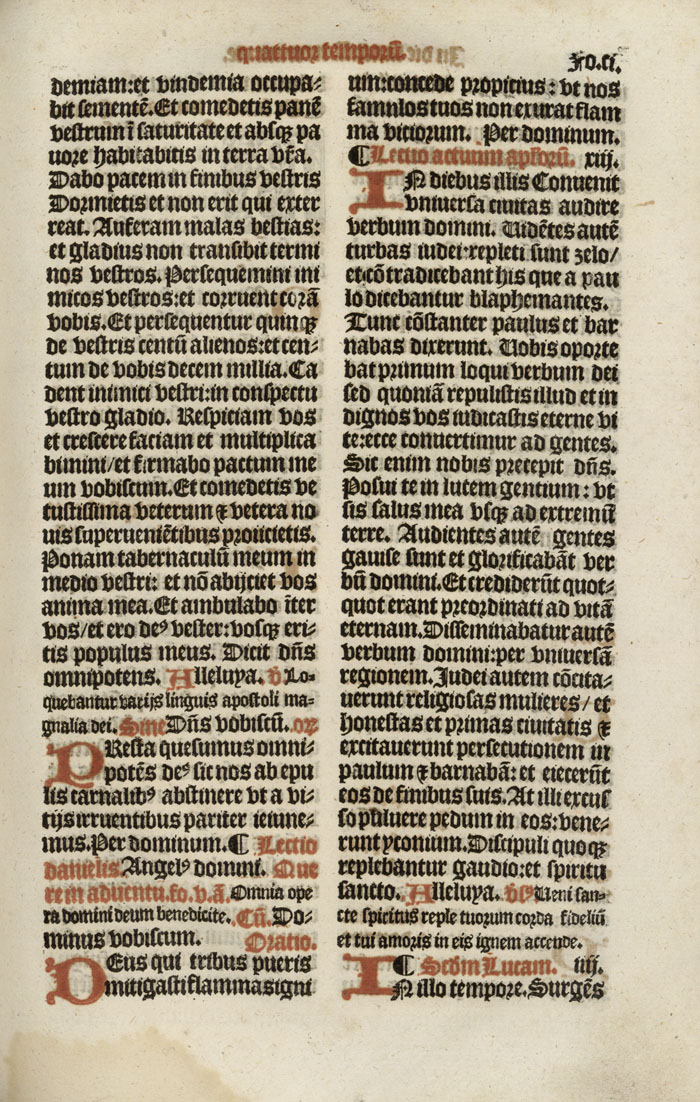 quattuor temporū.
Fo.ci.
demiam:et vindemia occupa⸗
bit sementē.Et comedetis panē
vestrum ī saturitate et absqꝫ pa
uore habitabitis in terra vr̄a.
Dabo pacem in finibus vestris
Dormietis et non erit qui exter
reat. Auferam malas bestias:
et gladius non transibit termi
nos vestros. Persequemini ini
micos vestros:et corruent corā
vobis.Et persequentur quinqꝫ
de vestris centū alienos:et cen⸗
tum de vobis decem millia.Ca
dent inimici vestri:in conspectu
vestro gladio. Respiciam vos
et crescere faciam et multiplica
bimini/et firmabo pactum me
um vobiscum.Et comedetis ve
tustissima veterum ⁊ vetera no
uis superueniētibus proiicietis.
Ponam tabernaculū meum in
medio vestri: et nō abijciet vos
anima mea.Et ambulabo īter
vos/et ero deꝰ vester:vosqꝫ eri⸗
tis populus meus. Dicit dn̄s
omnipotens. Alleluya. ℣ Lo⸗
quebantur varijs linguis apostoli ma⸗
gnalia dei. Sine Dn̄s vobiscū. or̄
PResta quesumus omni⸗
potēs deꝰ sic nos ab epu
lis carnalibꝰ abstinere vt a vi⸗
tijs irruentibus pariter ieiune⸗
mus.Per dominum. ¶ Lectio
danielis Angelꝰ domini. Que
re in aduentu.fo.v.ā. Omnia ope
ra domini deum benedicite. Cū. Do⸗
minus vobiscum. Oratio.
DEus qui tribus pueris
mitigasti flammas igni
um:concede propicius: vt nos
famnlos tuos non exurat flam
ma viciorum. Per dominum.
¶ Lectio actuum apl̄orū. xiij.
IN diebus illis Conuenit
vniuersa ciuitas audire
verbum domini. Uidētes autē
turbas iudei:repleti sunt zelo/
et cōtradicebant his que a pau
lo dicebantur blaphemantes.
Tunc cōstanter paulus et bar
nabas dixerunt. Uobis oporte
bat primum loqui verbum dei
sed quoniā repulistis illud et in
dignos vos iudicastis eterne vi
te:ecce conuertimur ad gentes.
Sic enim nobis precepit dn̄s.
Posui te in lutem gentium: vt
sis salus mea vsqꝫ ad extremū
terre. Audientes autē gentes
gauise sunt et glorificabāt ver
bū domini.Et crediderūt quot⸗
quot erant preordinati ad vitā
eternam.Disseminabatur autē
verbum domini:per vniuersā
regionem.Judei autem cōcita⸗
uerunt religiosas mulieres/et
honestas et primas ciuitatis ⁊
excitauerunt persecutionem in
paulum ⁊ barnabā: et eiecerūt
eos de finibus suis. At illi excus
so pluluere pedum in eos:vene⸗
runt yconium.Discipuli quoqꝫ
replebantur gaudio:et spiritu
sancto. Alleluya. ℣ Ueni san⸗
cte spiritus reple tuorum corda fideliū
et tui amoris in eis ignem accende.
¶ Scd̄m Lucam. iiij.
IN illo tempore. Surgēs